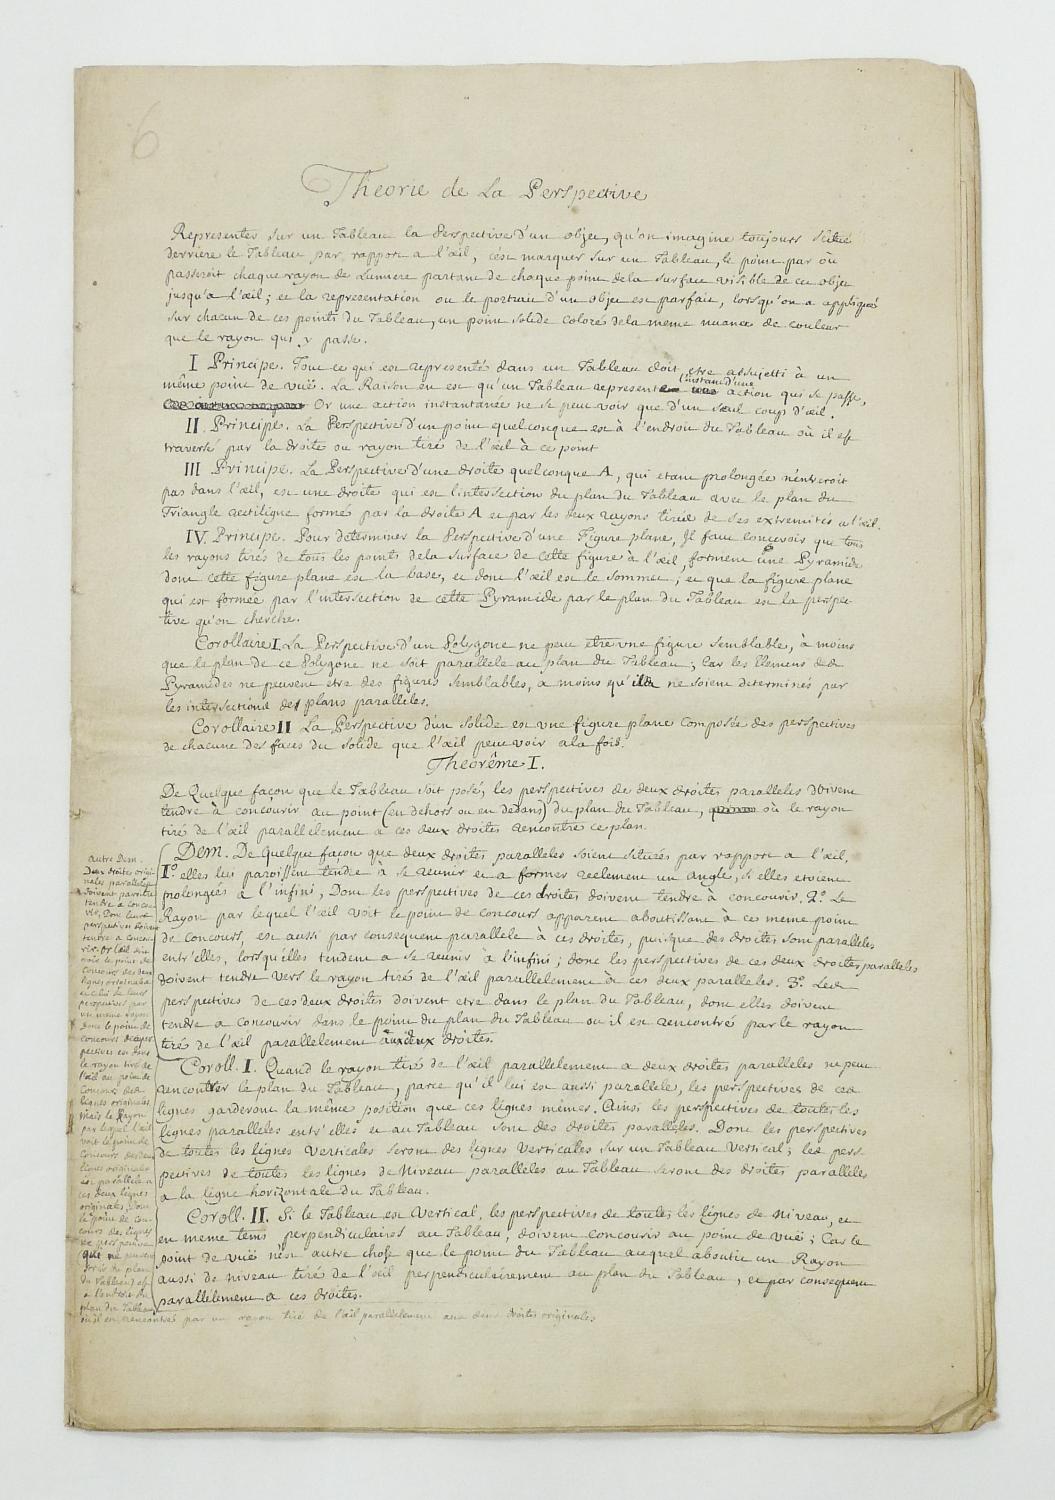 6
Theorie de La Perspective
Representer sur un Tableau la Perspective d'un objet, qu'on imagine toujours située
derriere le Tableau par rapport a l'œil, c'est marquer sur un Tableau, le point par où
passeroit chaque rayon de Lumiere partant de chaque point de la surface visible de cet objet
jusqu'a l'œil; et la representation ou le portrait d'un objet est parfait, lorsqu'on a appliqué
sur chacun de ces points du Tableau, un point solide coloré de la meme nuance de couleur
que le rayon qui y passe.
I Principe. Tout ce qui est representé dans un Tableau doit etre assujetti à un
même point de vuë. La Raison en est qu'un Tableau represente l'instant d'une action qui se passe,
Or une action instantanée ne se peut voir que d'un seul coup d'œil.
II. Principe. La Perspective d'un point quelconque est à l'endroit du Tableau où il est
traversé par la droite ou rayon tiré de l'œil à ce point
III Principe. La Perspective d'une droite quelconque A, qui etant prolongée n'entreroit
pas dans l'œil, est une droite qui est l'intersection du plan du Tableau avec le plan du
Triangle rectiligne formé par la droite A et par les deux rayons tirés de ses extremités a l'œil.
IV. Principe. Pour determiner la Perspective d'une Figure plane, Il faut concevoir que tous
les rayons tirés de tous les points de la surface de cette figure à l'œil, forment une Pyramide
dont cette figure plane est la base, et dont l'œil est le sommet; et que la figure plane
qui est formée par l'intersection de cette Pyramide par le plan du Tableau est la perspec-
tive qu'on cherche.
Corollaire I La Perspective d'un Polygone ne peut etre une figure semblable, à moins
que le plan de ce Polygone ne soit parallele au plan du Tableau; Car les Elemens des
Pyramides ne peuvent etre des figures semblables, a moins qu'ils ne soient determinés par
les intersections des plans paralleles.
Corollaire II La Perspective d'un solide est une figure plane composée des perspectives
de chacune des faces du solide que l'œil peut voir a la fois.
Theorême I.
De Quelque façon que le Tableau soit posé, les perspectives de deux droites paralleles doivent
tendre à concourir au point (en dehors ou en dedans) du plan du Tableau, où le rayon
tiré de l'œil parallelement à ces deux droites rencontre ce plan.
Dem. De quelque façon que deux droites paralleles soient situées par rapport a l'œil,
1.° elles lui paroissent tendre à se reunir et a former reelement un angle, si elles etoient
prolongées a l'infini, Donc les perspectives de ces droites doivent tendre à concourir. 2.° Le
Rayon par lequel l'œil voit le point de concours apparent aboutissant à ce meme point
de concours, est aussi par consequent parallele à ces droites, puisque des droites sont paralleles
entr'elles, lorsqu'elles tendent a se reunir à l'infini; donc les perspectives de ces deux droites paralleles
doivent tendre vers le rayon tiré de l'œil parallelement à ces deux paralleles. 3.° Les
perspectives de ces deux droites doivent etre dans le plan du Tableau, donc elles doivent
tendre a concourir dans le point du plan du Tableau ou il est rencontré par le rayon
tiré de l'œil parallelement aux deux droites.
Coroll. I. Quand le rayon tiré de l'œil parallelement a deux droites paralleles ne peut
rencontrer le plan du Tableau, parce qu'il lui est aussi parallele, les perspectives de ces
lignes garderont la même position que ces lignes mêmes. Ainsi les perspectives de toutes les
lignes paralleles entr'elles et au Tableau sont des droites paralleles. Donc les perspectives
de toutes les lignes verticales seront des lignes verticales sur un Tableau vertical; les pers-
pectives de toutes les lignes de niveau paralleles au Tableau seront des droites paralleles
a la ligne horizontale du Tableau.
Coroll. II. Si le Tableau est vertical, les perspectives de toutes les lignes de niveau, et
en meme tems perpendiculaires au Tableau, doivent concourir au point de vuë; Car le
point de vuë n'est autre chose que le point du Tableau auquel aboutit un Rayon
aussi de niveau tiré de l'œil perpendiculairement au plan du Tableau, et par consequent
parallelement a ces droites.
autre Dem.
Deux droites origi-
nales paralleles
doivent paroitre
tendre a concou-
rir, Donc leurs
perspectives doivent
tendre a concou-
rir. Or l'œil doit
voir le point de
concours des deux
lignes originales
et celui de leurs
perspectives par
un meme rayon
donc le point de
concours des pers-
pectives est dans
le rayon tiré de
l'œil au point de
concours des
lignes originales,
Mais le Rayon
par lequel l'œil
voit le point de
concours des deux
lignes originales
est parallele a
ces deux lignes
originales, Donc
le point de con-
cours des lignes
de perspective
qui ne peuvent
sortir du plan
du Tableau est
a l'endroit du
plan du Tableau
où il est rencontré par un rayon tiré de l'œil parallelement aux deux droites originales